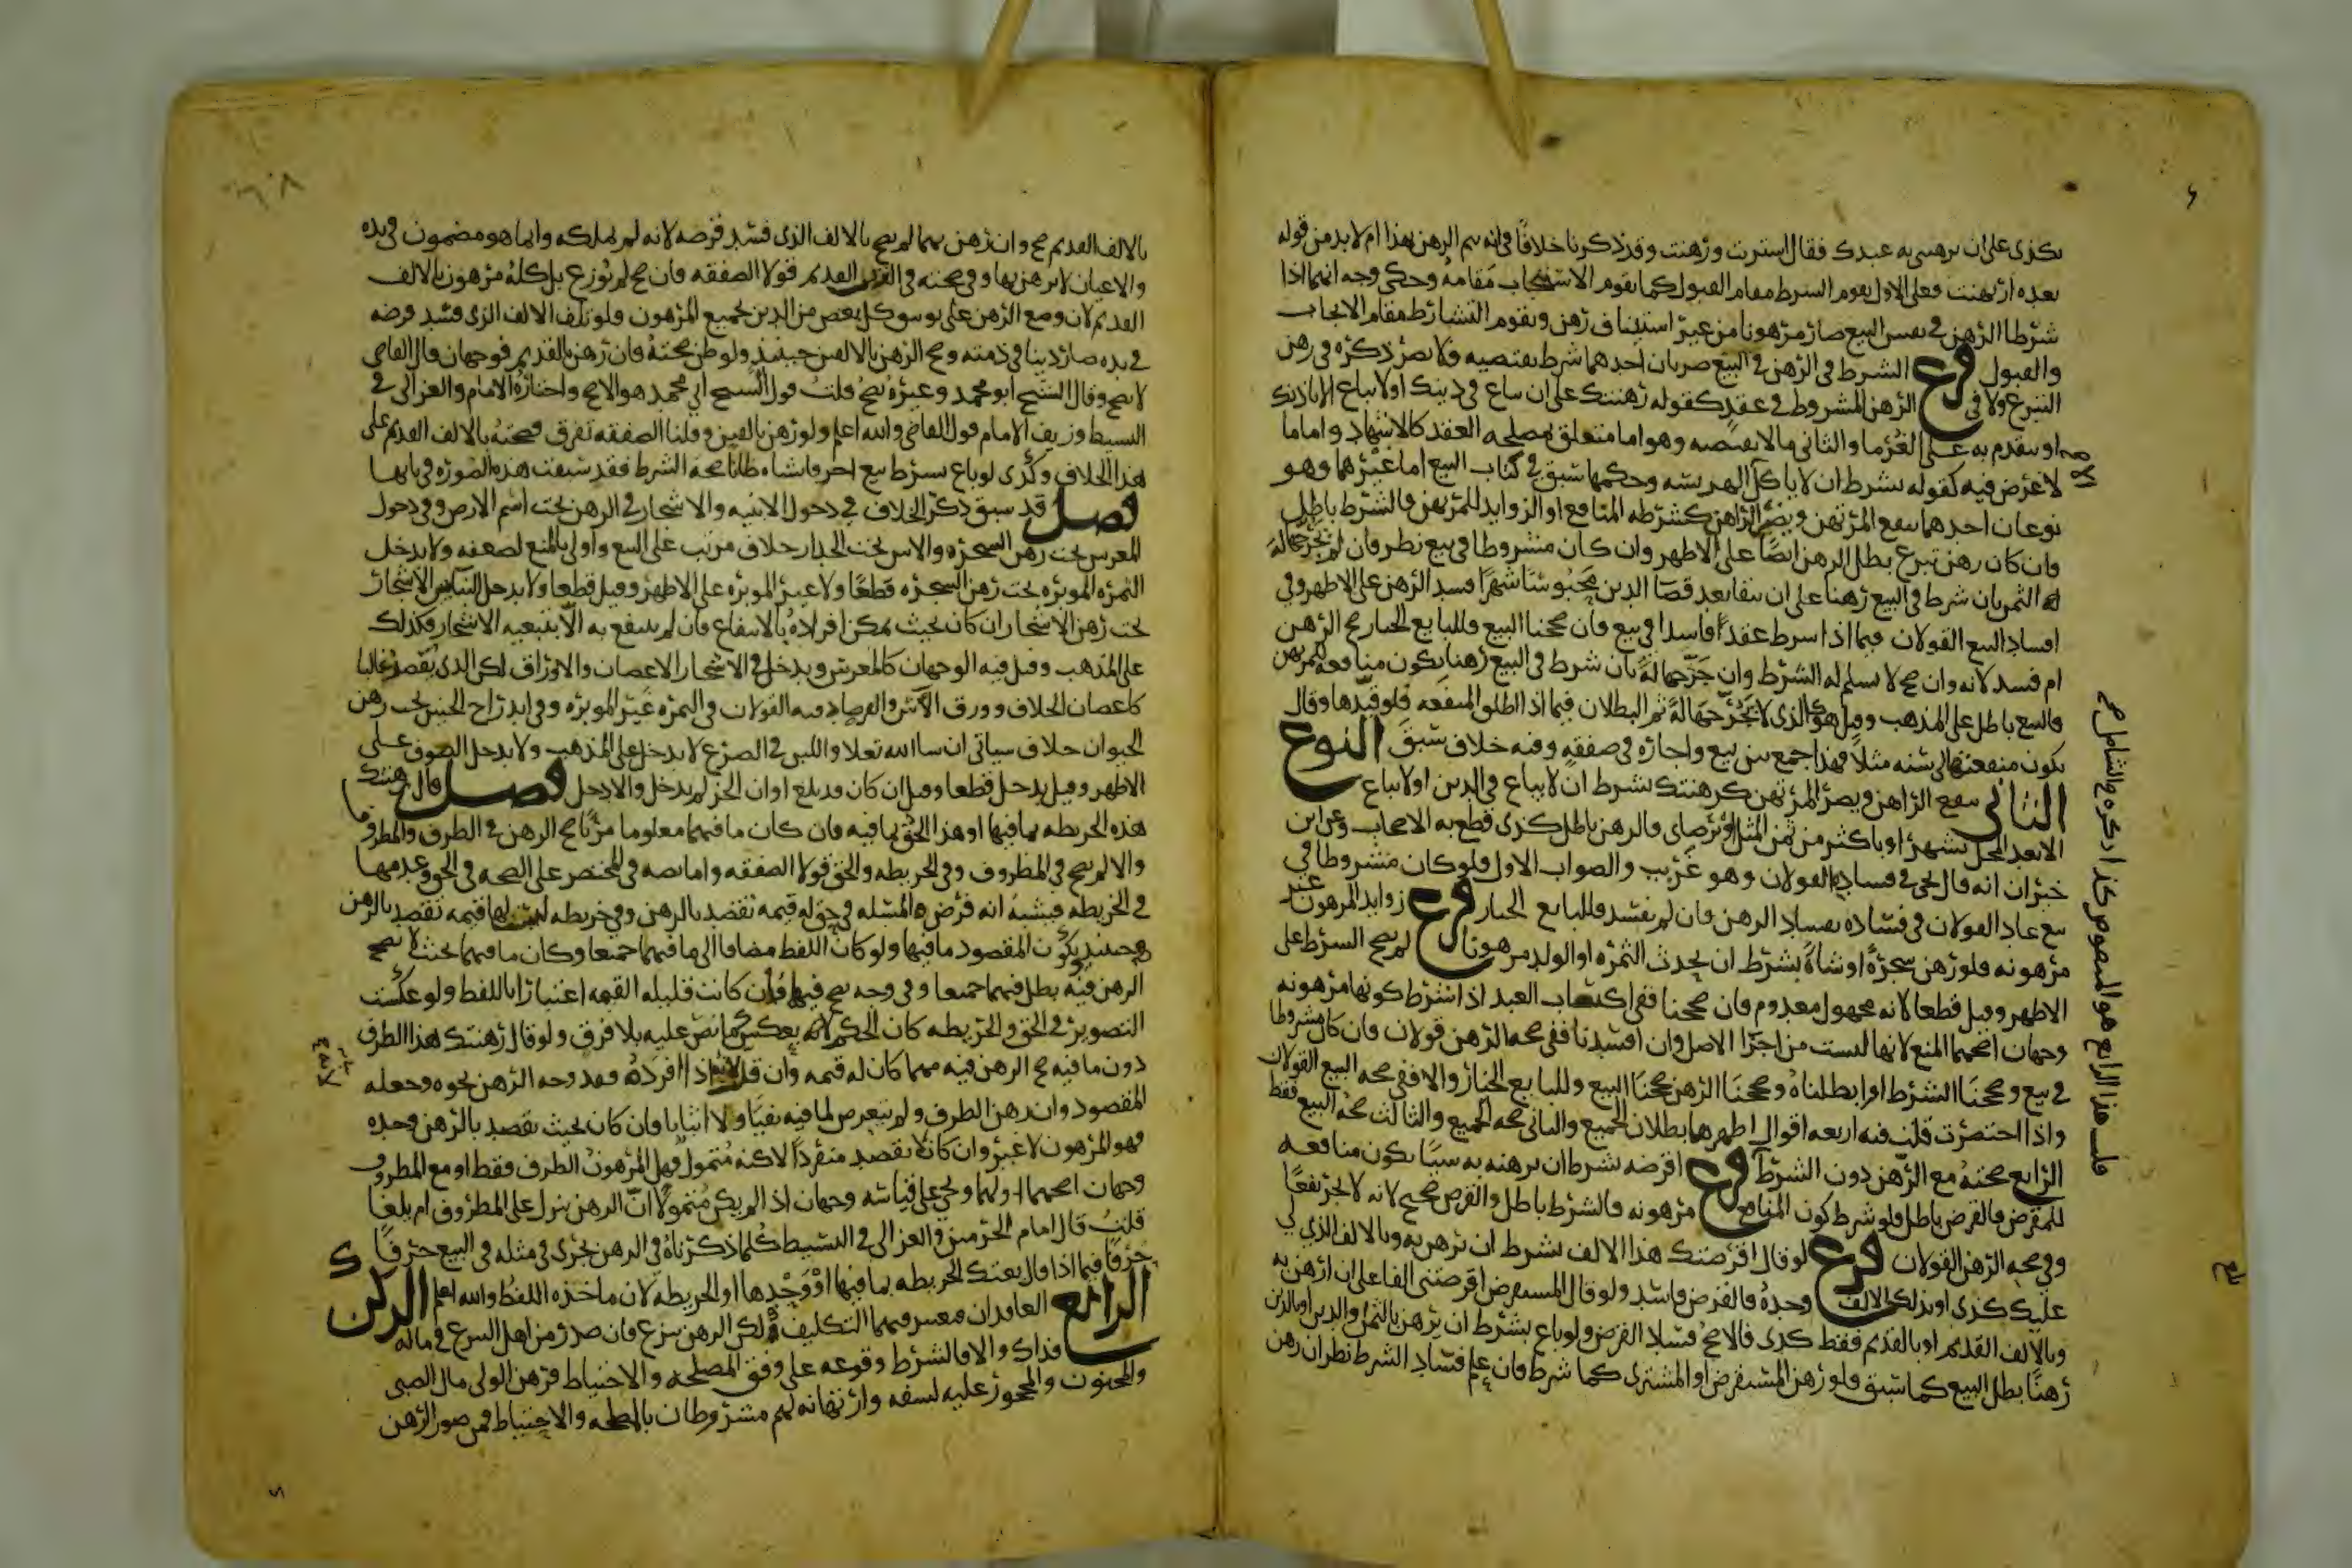 بكذى على ان ترهننى به عبدك فقال اشتريت ورهنت وقد ذكرنا خلافًا فى انه يتم الرهن بهذا ام لا بد من قوله
بعده ارتهنت فعلى الاول يقوم الشرط مقام القبول كما يقوم الاستيجاب مقامه وحكى وجه انهما اذا
شرطا الرهن فى نفس البيع صار مرهونا من غير استيناف رهن ويقوم التشارط مقام الايجاب
والقبول فرع الشرط فى الرهن فى البيع ضربان احدهما شرط يقتضيه فلا يضر ذكره فى رهن
التبرع ولا فى الرهن المشروط فى عقد كقوله رهنتك على ان يباع فى دينك او لا يباع الا باذنك
او يتقدم به على الغرما والثانى ما لا يقتضيه وهو اما متعلق بمصلحه العقد كالاشهاد واما ما
لا غرض فيه كقوله بشرط ان لا ياكل الهريسه وحكمها سبق فى كتاب البيع اما غيرهما وهو
نوعان احدهما ينفع المرتهن ويضر الراهن كشرطه المنافع او الزوايد للمرتهن فالشرط باطل
فان كان رهن تبرع بطل الرهن ايضًا على الاظهر وان كان مشروطا فى بيع نظر فان لم تجر جهاله
الثمر بان شرط فى البيع رهنا على ان يبقا بعد قضا الدين محبوسًا شهرًا فسد الرهن على الاظهر وفى
افساد البيع القولان فيما اذا شرط عقدًا فاسدا فى بيع فان صححنا البيع فللبايع الخيار صح الرهن
ام فسد لانه وان صح لا يسلم له الشرط وان جر جهالة بان شرط فى البيع رهنا يكون منافعه للمرتهن
فالبيع باطل على المذهب وقيل هو كالذى لا تجر جهالة ثم البطلان فيما اذا اطلق المنفعه فلو قيدها وقال
يكون منفعتها لى سنه مثلًا فهذا جمع بين بيع واجاره فى صفقه وفيه خلاف سبق النوع
الثانى ينفع الراهن ويضر المرتهن كرهنتك بشرط ان لا يباع فى الدين او لا يباع
الا بعد المحل بشهر او باكثر من ثمن المثل او برضاى فالرهن باطل كذى قطع به الاصحاب وعن ابن
خيران انه قال يجى فى فساده القولان وهو غريب والصواب الاول فلو كان مشروطا فى
بيع عاد القولان فى فساده بفساد الرهن فان لم يفسد فللبايع الخيار فرع زوايد المرهون غير
مرهونه فلو رهن شجرة او شاة بشرط ان يحدث الثمره او الولد مرهونا لم يصح الشرط على
الاظهر وقيل قطعا لانه مجهول معدوم فان صححنا ففى اكتساب العبد اذا شرط كونها مرهونه
وجهان اصحهما المنع لانها ليست من اجزا الاصل وان افسدنا ففى صحه الرهن قولان فان كان مشروطا
فى بيع وصححنا الشرط او ابطلناه وصححنا الرهن صححنا البيع وللبايع الخيار والا ففى صحه البيع القولان
واذا اختصرت قلت فيه اربعه اقوال اظهرها بطلان الجميع والثانى صحه الجميع والثالث صحه البيع فقط
الرابع صحته مع الرهن دون الشرط فرع اقرضه بشرط ان يرهنه به شيا يكون منافعه
للمقرض فالقرض باطل فلو شرط كون المنافع مرهونه فالشرط باطل والقرض صحيح لانه لا يجر نفعًا
وفى صحه الرهن القولان فرع لو قال اقرضتك هذا الالف بشرط ان ترهن به وبالالف الذى لى
عليك كذى او بذلك الالف وحده فالقرض فاسد ولو قال المستقرض اقرضنى الفا على ان ارهن به
وبالالف القديم او بالقديم فقط كذى فالاصح فساد القرض ولو باع بشرط ان يرهن بالثمن والدين او بالدين
رهنًا بطل البيع كما سبق فلو رهن المستقرض او المشترى كما شرط فان علم فساد الشرط نظر ان رهن
قلت هذا الرابع هو المنصوص كذا ذكره فى الشامل صح
بالالف القديم صح وان رهن بهما لم يصح بالالف الذى فسد قرضه لانه لم يملكه وانما هو مضمون فى يده
والاعيان لا يرهن بها وفى صحته فى القديم قولا الصفقه فان صح لم يوزع بل كله مرهون بالالف
القديم لان وضع الرهن على توثق كل بعض من الدين بجميع المرهون فلو تلف الالف الذى فسد قرضه
فى يده صار دينا فى ذمته وصح الرهن بالالفين حينئذ ولو ظن صحته فان رهن بالقديم فوجهان قال القاضى
لا يصح وقال الشيخ ابو محمد وغيره يصح قلت قول الشيخ ابى محمد هو الاصح واختاره الامام والغزالى فى
البسيط وزيف الامام قول القاضى والله اعلم ولو رهن بالفين وقلنا الصفقه تفرق فصحته بالالف القديم على
هذا الخلاف وكذى لو باع بشرط بيع اخر فانشاه ظانا صحة الشرط فقد سبقت هذه الصوره فى بابها
فصل قد سبق ذكر الخلاف فى دخول الابنيه والاشجار فى الرهن تحت اسم الارض وفى دخول
المغرس تحت رهن الشجره والاس تحت الجدار خلاف مرتب على البيع واولى بالمنع لضعفه ولا يدخل
الثمره الموبره تحت رهن الشجره قطعًا ولا غير الموبره على الاظهر وقيل قطعا ولا يدخل البياض بين الاشجار
تحت رهن الاشجار ان كان بحيث يمكن افراده بالانتفاع فان لم ينتفع به الا بتبعيه الاشجار فكذلك
على المذهب وقيل فيه الوجهان كالمغرس ويدخل فى الاشجار الاغصان والاوراق لكن الذى يقصد غالبا
كاغصان الخلاف وورق الآس والفرصاد فيه القولان فى الثمره غير الموبره وفى اندراج الجنين تحت رهن
الحيوان خلاف سياتى ان شا الله تعلا واللبن فى الضرع لا يدخل على المذهب ولا يدخل الصوف على
الاظهر وقيل يدخل قطعا وقيل ان كان قد بلغ اوان الجز لم يدخل والا دخل فصل قال رهنتك
هذه الخريطه بما فيها او هذا الحق بما فيه فان كان ما فيهما معلوما مرئيًا صح الرهن فى الظرف والمظروف
والا لم يصح فى المظروف وفى الخريطه والحق قولا الصفقه واما نصه فى المختصر على الصحه فى الحق وعدمها
فى الخريطه فسببه انه فرض المسئله فى حق له قيمه تقصد بالرهن وفى خريطه ليس لها قيمه تقصد بالرهن
فحينئذ يكون المقصود ما فيها ولو كان اللفظ مضافا الى ما فيهما جميعا وكان ما فيهما بحيث لا يصح
الرهن فيه بطل فيهما جميعا وفى وجه يصح فيها وان كانت قليله القيمه اعتبارًا باللفظ ولو عكست
التصوير فى الحق والخريطه كان الحكم بعكس ما نص عليه بلا فرق ولو قال رهنتك هذا الظرف
دون ما فيه صح الرهن فيه مهما كان له قيمه وان قل لانه اذا افرده فقد وجه الرهن نحوه وجعله
المقصود وان رهن الظرف ولم يتعرض لما فيه نفيًا ولا اثباتا فان كان بحيث يقصد بالرهن وحده
فهو المرهون لا غير وان كان لا يقصد منفردًا لاكنه متمول فهل المرهون الظرف فقط او مع المظروف
وجهان اصحهما اولهما ويجى على قياسه وجهان اذا لم يكن متمولًا ان الرهن ينزل على المظروف ام يلغا
قلت قال امام الحرمين والغزالى فى البسيط كلما ذكرناه فى الرهن يجرى فى مثله فى البيع حرفًا
حرفًا فيما اذا قال بعتك الخريطه بما فيها او وحدها او الخريطه لان ماخذه اللفظ والله اعلم الركن
الرابع العاقدان فيعتبر فيهما التكليف لكن الرهن تبرع فان صدر من اهل التبرع فى ماله
فذاك والا فالشرط وقوعه على وفق المصلحه والاحتياط فرهن الولى مال الصبى
والمجنون والمحجور عليه لسفه وارتهانه لهم مشروطان بالمصلحه والاحتياط فمن صور الرهن